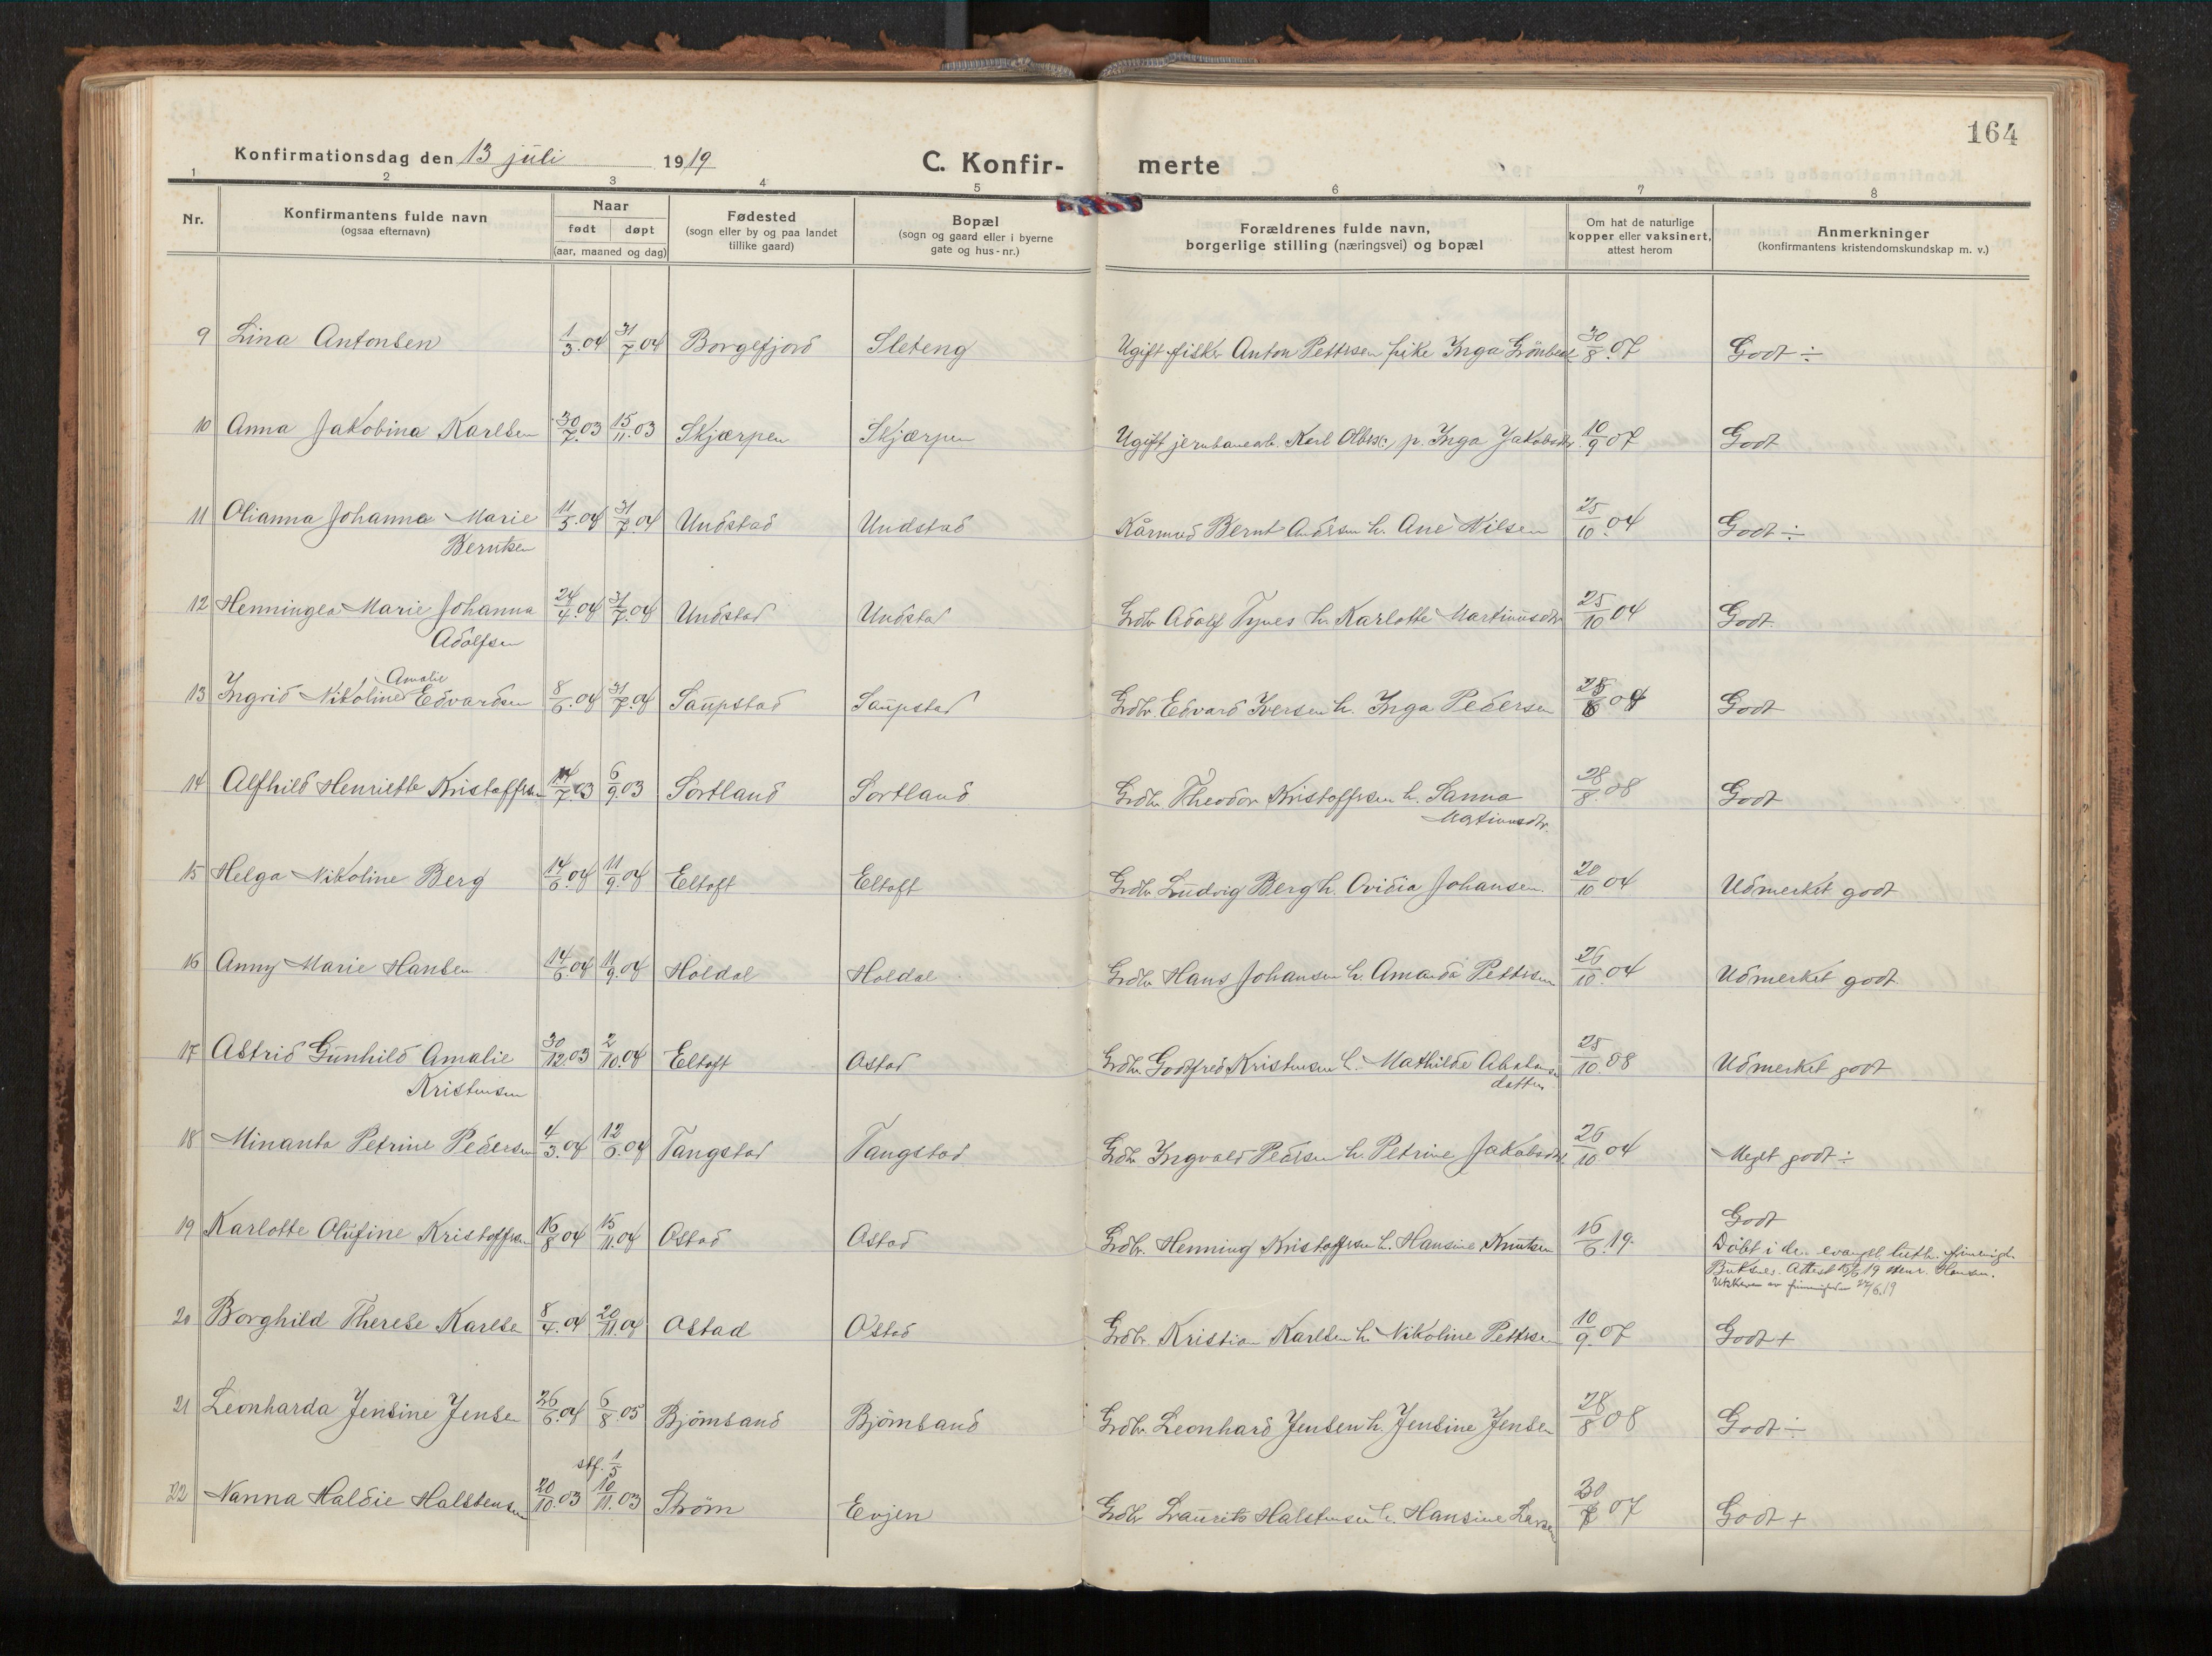 164
Konfirmationsdag den 13 juli 1919
C. Konfir- merte
1 2 3 4 5 6 7 8
Nr.
Konfirmantens fulde navn
(ogsaa efternavn)
Naar
født døpt
(aar, maaned og dag)
Fødested
(sogn eller by og paa landet
tillike gaard)
Bopæl
(sogn og gaard eller i byerne
gate og hus-nr.)
Forældrenes fulde navn,
borgerlige stilling (næringsvei) og bopæl
Om hat de naturlige
kopper eller vaksinert,
attest herom
Anmerkninger
(konfirmantens kristendomskundskap m. v.)
9 Lina Antonsen 1/3.04 31/7 04 Borgefjord Sleteng Ugift fisker Anton Pettersen pike Inga 30/8.07 Godt ÷
10 Anna Jakobina Karlsen 30/7.03 15/11.03 Skjærpen Skjærpen Ugift jernbanearb. Karl p. Inga Jakobsdtr. 10/9 07 Godt
11 Olianna Johanna Marie 11/5.04 31/7.04 Undstad Undstad Kårmand Bernt Andersen h. Ane Nilsen 25/10.04 Godt ÷
Berntsen
12 Henningea Marie Johanna 24/4.04 31/7.04 Undstad Undstad Grdbr Adolf Tynes h. Karlotte Martinusdtr 25/10 04 Godt
Adolfsen
Amalie
13 Ingrid Nikoline Edvardsen 8/6.04 31/7.04 Saupstad Saupstad Grdbr. Edvard Iversen h. Inga Pedersen Godt
14 Alfhild Henriette Kristoffersen 14/7.03 6/9.03 Sortland Sortland Grdbr Theodor Kristoffersen h. Sanna 28/8.08 Godt
Martinusdtr.
15 Helga Nikoline Berg 14/6.04 11/9.04 Eltoft Eltoft Grdbr Ludvig Berg h. Ovidia Johansen 20/10 04 Udmerket godt
16 Anny Marie Hansen 14/6.04 11/9.04 Holdal Holdal Grdbr Hans Johansen h. Amanda Pettersen 26/10.04 Udmerket godt
17 Astrid Gunhild Amalie 30/12.03 2/10.04 Eltoft Ostad Grdbr Godtfred Kristensen h. Mathilde 25/10.08 Udmerket godt
Kristensen datter
18 Minanta Petrine Pedersen 4/3.04 12/6.04 Tangstad Tangstad Grdbr Ingvald Pedersen h. Petrine Jakobsdtr 26/10 04 Meget godt ÷
19 Karlotte Olufine Kristoffersen 16/8 04 15/11.04 Ostad Ostad Grdbr. Henning Kristoffersen h. Hansine Knutsen 16/6.19. Godt
Döbt i de. evangel. luth. frimenigh.
Buksnes. Attest 15/6 19 Henr. Hansen.
av frimenigheden 24/6.19
20 Borghild Therese Karlsen 8/4.04 20/11.04 Ostad Ostad Grdbr. Kristian Karlsen h. Nikoline Pettersen 10/9.07 Godt +
21 Leonharda Jensine Jensen 26/6.04 6/8.05 Björnsand Björnsand Grdbr. Leonhard Jensen h. Jensine Jensen 28/8 08 Godt ÷
stf. 1/5
22 Nanna Haldie Halstensen 20/10.03 10/11.03 Ström Evjen Grdbr Laurits Halstensen h. Hansine Larsen 07 Godt +